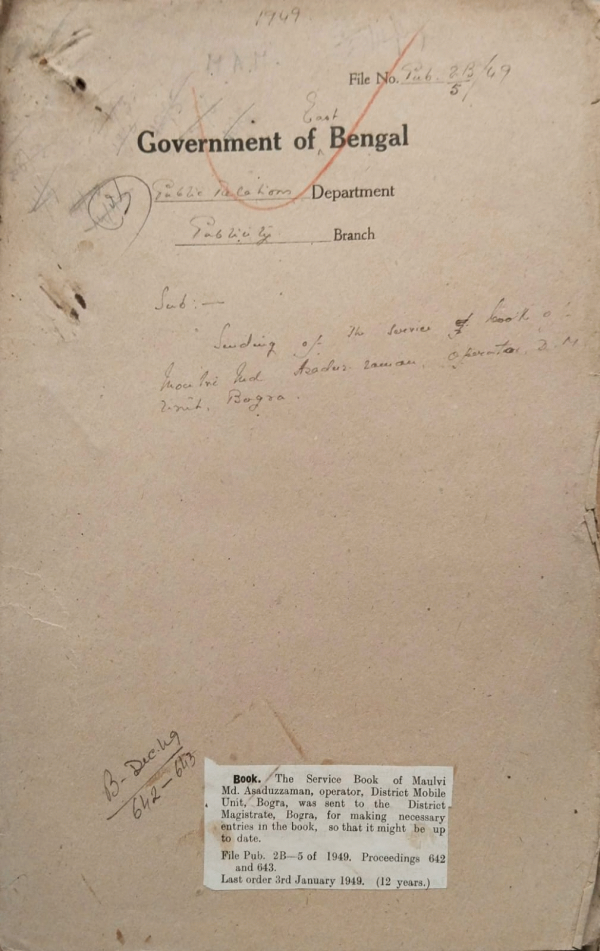 1949
File No. Pub. 2B/5/49
East
Government of ^ Bengal
Public Relations Department
Publicity Branch
Sub:—
Sending of the service book of
Moulvi Md. Asaduz-zaman, operator, D.M.
Unit, Bogra.
B- Dec. 49
642-643
Book. The Service Book of Maulvi
Md. Asaduzzaman, operator, District Mobile
Unit, Bogra, was sent to the District
Magistrate, Bogra, for making necessary
entries in the book, so that it might be up
to date.
File Pub. 2B—5 of 1949. Proceedings 642
and 643.
Last order 3rd January 1949. (12 years.)